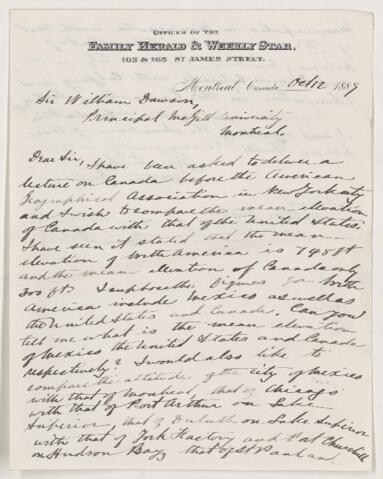 OFFICES OF THE
FAMILY HERALD & WEEKLY STAR,
163 & 165 ST JAMES STREET.
Montreal, Canada Oct 12 1889
Sir William Dawson,
Principal McGill University
Montreal.
Dear Sir, I have been asked to deliver a
lecture on Canada before the American
Geographical Association in New York city
and I wish to compare the mean elevation
of Canada with that of the United States.
I have seen it stated that the mean
elevation of North America is 748 ft
and the mean elevation of Canada only
300 ft. I suppose the figures for North
America include Mexico as well as
the United States and Canada. Can you
tell me what is the mean elevation
of Mexico the United States and Canada
respectively? I would also like to
compare the altitude of the city of Mexico
with that of Montreal, that of Chicago
with that of Port Arthur on Lake
Superior, that of Duluth on Lake Superior
with that of York Factory and Fort Churchill
on Hudson Bay, that of St Paul and